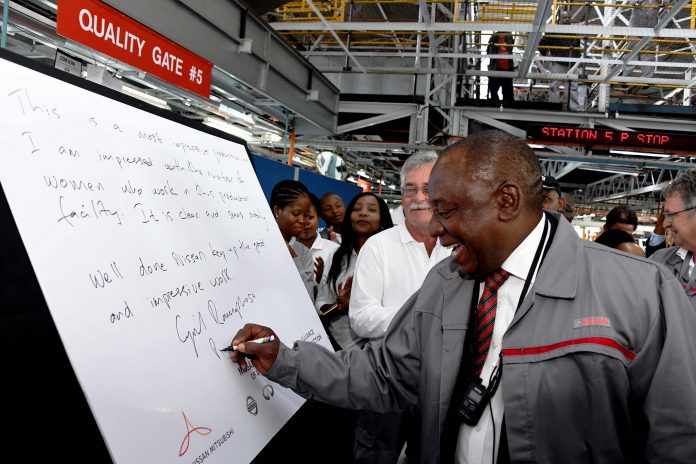 QUALITY GATE #5
STATION 5 P STOP
This is a most impressive production
I am impressed with the number of
women who work in this production
facility. It is clean and
Well done Nissan keep up the good
and impressive work
Cyril Ramaphosa
NISSAN MITSUBISHI